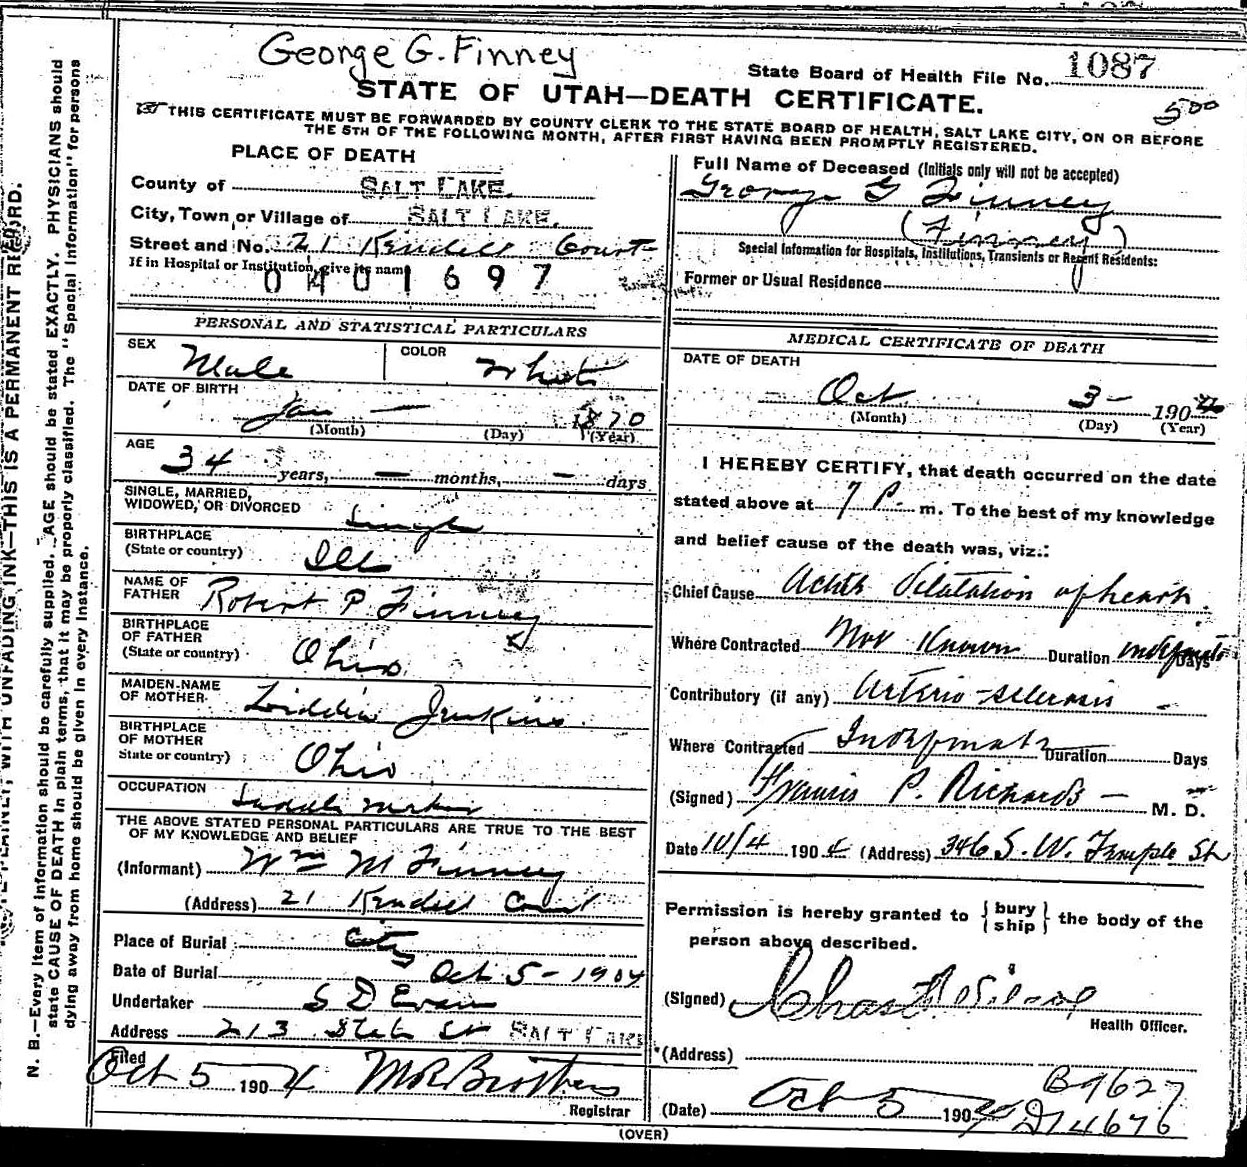 George G. Finney
State Board of Health File No. 1087
STATE OF UTAH—DEATH CERTIFICATE.
500
THIS CERTIFICATE MUST BE FORWARDED BY COUNTY CLERK TO THE STATE BOARD OF HEALTH, SALT LAKE CITY, ON OR BEFORE
THE 5TH OF THE FOLLOWING MONTH, AFTER FIRST HAVING BEEN PROMPTLY REGISTERED.
PLACE OF DEATH
County of SALT LAKE.
City, Town or Village of SALT LAKE.
Street and No. 21 Kendell Court
If in Hospital or Institution, give its name
0401697
Full Name of Deceased (Initials only will not be accepted)
George G Finney
(Finney)
Special Information for Hospitals, Institutions, Transients or Recent Residents:
Former or Usual Residence
PERSONAL AND STATISTICAL PARTICULARS
SEX Male COLOR White
DATE OF BIRTH
Jan — 1870
(Month) (Day) (Year)
AGE
34 years, — months, — days
SINGLE, MARRIED,
WIDOWED, OR DIVORCED Single
BIRTHPLACE
(State or country) Ills
NAME OF
FATHER Robert P Finney
BIRTHPLACE
OF FATHER
(State or country) Ohio
MAIDEN-NAME
OF MOTHER Liddie Jenkins
BIRTHPLACE
OF MOTHER
State or country) Ohio
OCCUPATION Saddle maker
THE ABOVE STATED PERSONAL PARTICULARS ARE TRUE TO THE BEST
OF MY KNOWLEDGE AND BELIEF
(Informant) Wm M Finney
(Address) 21 Kendell Court
Place of Burial City
Date of Burial Oct 5-1904
Undertaker S D Evans
Address 213 State St SALT LAKE
Filed
Oct 5 1904 M R Brothers
Registrar
MEDICAL CERTIFICATE OF DEATH
DATE OF DEATH
Oct 3- 1904
(Month) (Day) (Year)
I HEREBY CERTIFY, that death occurred on the date
stated above at 7 P. m. To the best of my knowledge
and belief cause of the death was, viz.:
Chief Cause Acute Dilatation of heart.
Where Contracted Not Known Duration Days
Contributory (if any) Arterio-sclerosis -
Where Contracted Duration Days
(Signed) Francis P. Richards — M. D.
Date 10/4 1904 (Address) 346 S. W. Temple St
Permission is hereby granted to {bury
ship} the body of the
person above described.
(Signed)
Health Officer.
(Address)
(Date) Oct 5 190
B9627
D14676
(OVER)
N. B.—Every item of information should be carefully supplied. AGE should be stated EXACTLY. PHYSICIANS should
state CAUSE OF DEATH in plain terms, that it may be properly classified. The "Special Information" for persons
dying away from home should be given in every instance.
WITH UNFADING INK—THIS IS A PERMANENT RECORD.